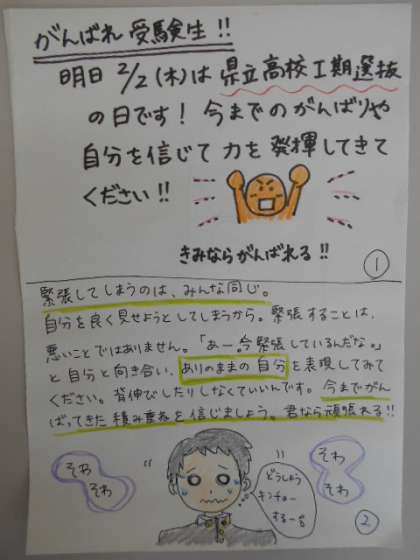 がんばれ 受験生!!
明日 2/2(木)は 県立高校Ⅰ期選抜
の日です! 今までのがんばりや
自分を信じて 力を発揮してきて
ください!!
きみならがんばれる!!
①
緊張してしまうのは、みんな同じ。
自分を良く見せようとしてしまうから。緊張することは、
悪いことではありません。「あー、今緊張しているんだな。」
と自分と向き合い、ありのままの自分を表現してみて
ください。背伸びしたりしなくていいんです。今までがん
ばってきた積み重ねを信じましょう。君なら頑張れる!!
そわ
そわ
どうしよう
キンチョー
する〜
そわ
そわ
②